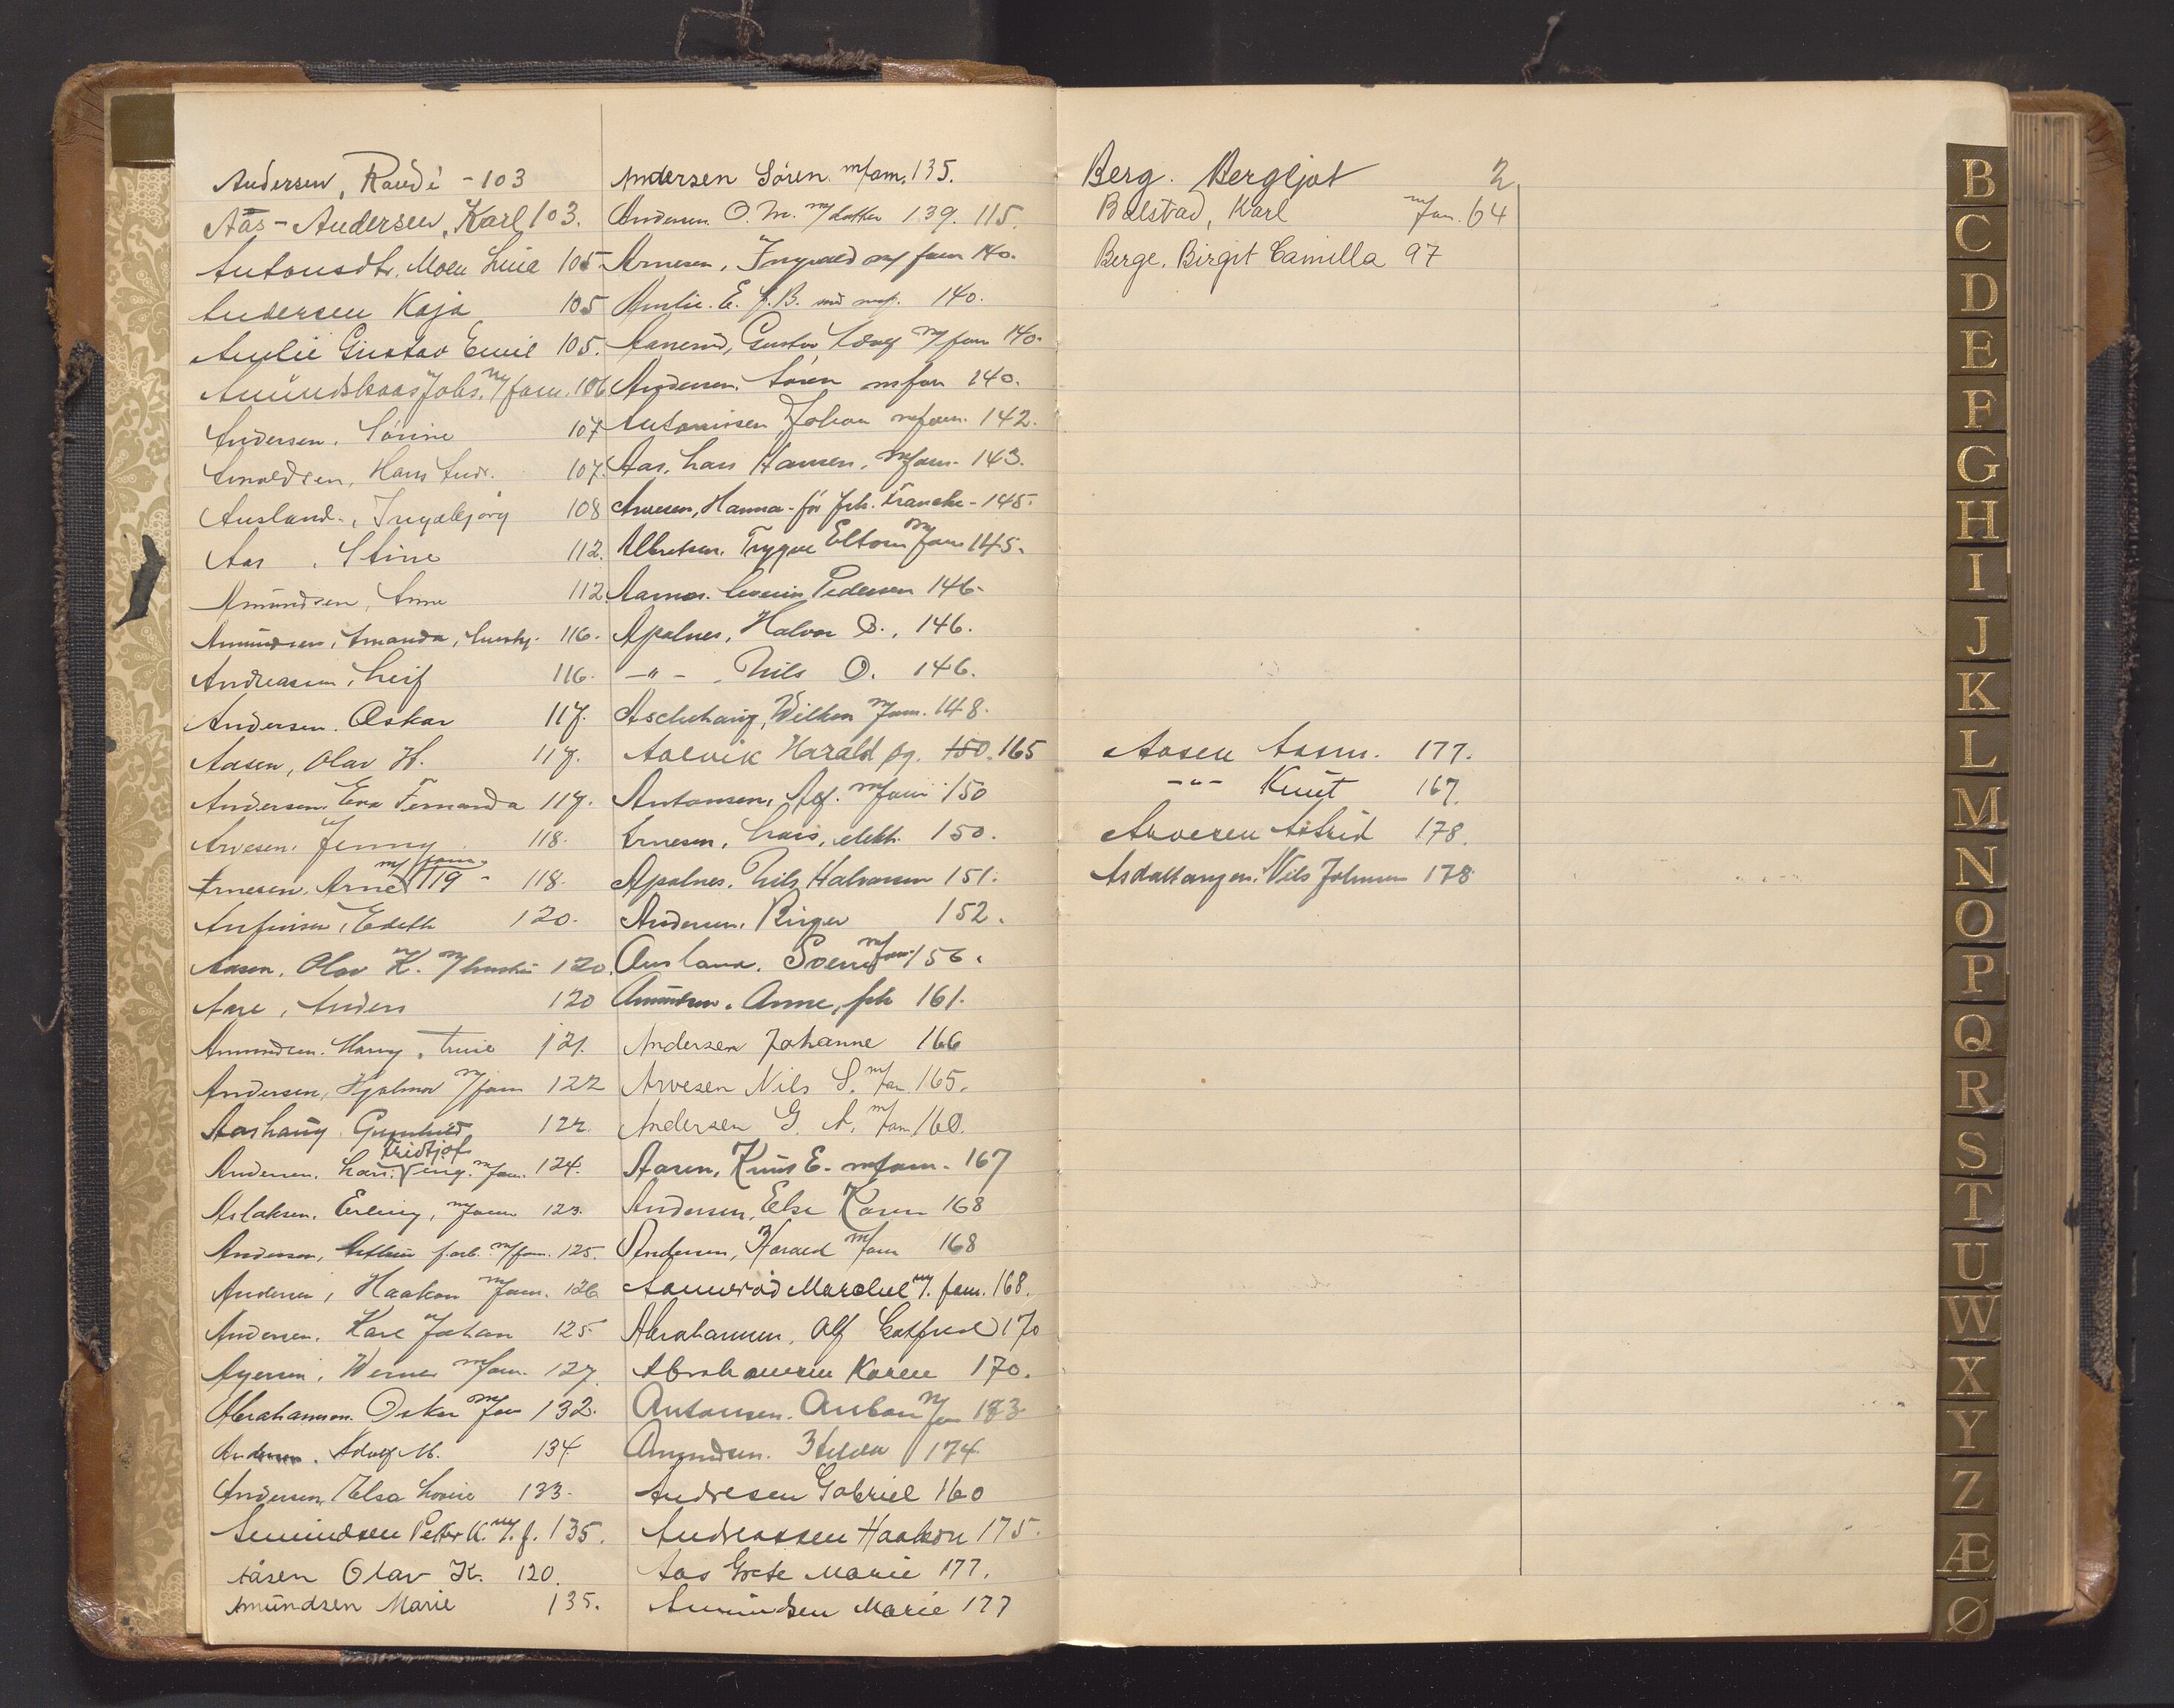 Andersen, Randi - 103
Aas - Andersen, Karl 103.
Antonsdtr. Moen Lina 105
Andersen Kaja 105
Amlie Gustav Emil 105.
Amundskaas Johs. m/fam. 106
Andersen. Sörine 107
Arnoldsen, Hans Andr. 107.
Ausland, Ingebjörg 108
Aas, Stine 112.
Amundsen, Anne 112.
Amundsen, Amanda, 116.
Andreassen, Leif 116.
Andersen. Oskar 117.
Aasen, Olav H. 117.
Andersen, Eva Fernanda 117.
Arvesen, Jenny 118.
Arnesen, Arne m/fam. 119 - 118.
Anfinsen, Edith 120.
Aasen, Olav K. m/hustru 120.
Aase, Anders 120
Amundsen. Harry, 121.
Andersen, Hjalmar m/fam 122
Aashaug Gunhild 122.
Andersen. Lars Fridtjof m/fam. 124.
Aslaksen. Erling, m/fam 123.
Anderson, m/fam. 125.
Andersen, Haakon m/fam. 126
Andersen. Karl Johan 125
Ayersen, Werner m/fam. 127.
Abrahamsen. Oskar m/fam 132.
Andersen. Adolf M. 134
Andersen, Elsa Lovise 133.
Amundsen Petter K. m/f. 135.
Aåsen Olav K. 120.
Amundsen Marie 135.
Andersen Sören m/fam. 135.
Andersen O. M. m/datter 139. 115.
Arnesen, Ingvald m/fam 140.
Amlie. E. f. B. 140.
Aanerud, Gustav Adolf m/fam 140.
Andersen. Sören m/fam 140.
Antonissen Johan m/fam. 142.
Aas. Lars Hansen, m/fam. 143.
Arvesen, Hanna - för frk. Francke - 145.
Albretsen. Trygve Eltom m/fam 145.
Aamas. Severin Pedersen 146.
Apalnes, Halvor O., 146.
-"- , Nils O. 146.
Aschehaug, Wilhem m/fam. 148.
Aalvik Harald pg. 150. 165
Antonsen, Alf. m/fam 150
Arnesen, Lars, elekt. 150.
Apalnes. Nils Halvorsen 151.
Andersen, Birger 152.
Ausland. Svend m/fam 156.
Amundsen. Anne, frk 161.
Andersen Johanne 166
Arvesen Nils S. m/fam. 165.
Andersen G. A. m/fam 160.
Aasen, Knut E. m/fam. 167
Andersen, Else Karin 168
Andersen, Harald m/fam 168
Aannerød m/. fam. 168.
Abrahamsen, Alf Gotfred 170
Abrahamsen Karen 170.
Antonsen. Anton m/fam 173
Amundsen. Hilda 174.
Andresen Gabriel 160
Andreassen Haakon 175.
Aas Grete Marie 177.
Amundsen Marie 177
Berg. Bergljot 2
Bolstad, Karl m/fam. 64
Berge, Birgit Camilla 97
Aasen Aasm. 177.
-"- Knut 167.
Arvesen Astrid 178.
Asdaltangen. Nils Johnsen 178
B
C
D
E
F
G
H
I
J
K
L
M
N
O
P
Q
R
S
T
U
W
X
Y
Z
Æ
Ø